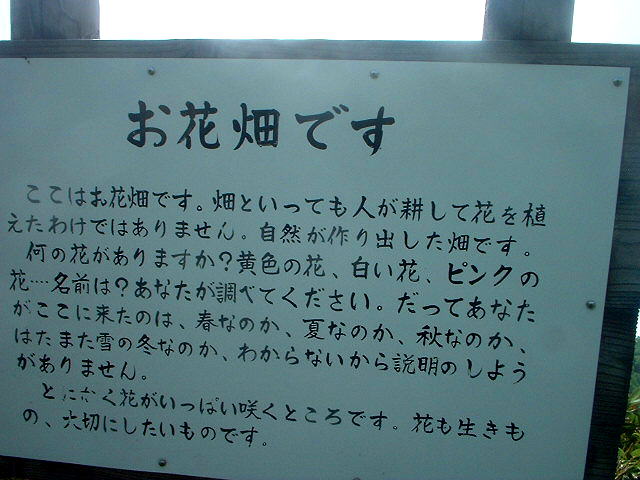 お花畑です
ここはお花畑です。畑といっても人が耕して花を植
えたわけではありません。自然が作り出した畑です。
何の花がありますか?黄色の花、白い花、ピンクの
花…名前は?あなたが調べてください。だってあなた
がここに来たのは、春なのか、夏なのか、秋なのか、
はたまた雪の冬なのか、わからないから説明のしよう
がありません。
とにかく花がいっぱい咲くところです。花も生きも
の、大切にしたいものです。